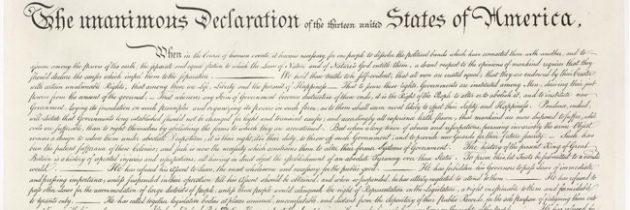 The unanimous Declaration of the thirteen united States of America,
When in the Course of human events, it becomes necessary for one people to dissolve the political bands which have connected them with another, and to
assume among the powers of the earth, the separate and equal station to which the Laws of Nature and of Nature's God entitle them, a decent respect to the opinions of mankind requires that they
should declare the causes which impel them to the separation. We hold these truths to be self-evident, that all men are created equal, that they are endowed by their Creator
with certain unalienable Rights, that among these are Life, Liberty and the pursuit of Happiness. That to secure these rights, Governments are instituted among Men, deriving their just
powers from the consent of the governed, That whenever any Form of Government becomes destructive of these ends, it is the Right of the People to alter or to abolish it, and to institute new
Government, laying its foundation on such principles and organizing its powers in such form, as to them shall seem most likely to effect their Safety and Happiness. Prudence, indeed,
will dictate that Governments long established should not be changed for light and transient causes; and accordingly all experience hath shewn, that mankind are more disposed to suffer, while
evils are sufferable, than to right themselves by abolishing the forms to which they are accustomed. But when a long train of abuses and usurpations, pursuing invariably the same Object
evinces a design to reduce them under absolute Despotism, it is their right, it is their duty, to throw off such Government, and to provide new Guards for their future security. Such has
been the patient sufferance of these Colonies; and such is now the necessity which constrains them to alter their former Systems of Government. The history of the present King of Great
Britain is a history of repeated injuries and usurpations, all having in direct object the establishment of an absolute Tyranny over these States. To prove this, let Facts be submitted to a candid
world. He has refused his Assent to Laws, the most wholesome and necessary for the public good. He has forbidden his Governors to pass Laws of immediate
and pressing importance, unless suspended in their operation till his Assent should be obtained; and when so suspended, he has utterly neglected to attend to them. He has refused to
pass other Laws for the accommodation of large districts of people, unless those people would relinquish the right of Representation in the Legislature, a right inestimable to them and formidable
to tyrants only. He has called together legislative bodies at places unusual, uncomfortable, and distant from the depository of their public Records, for the sole purpose of fatiguing them into